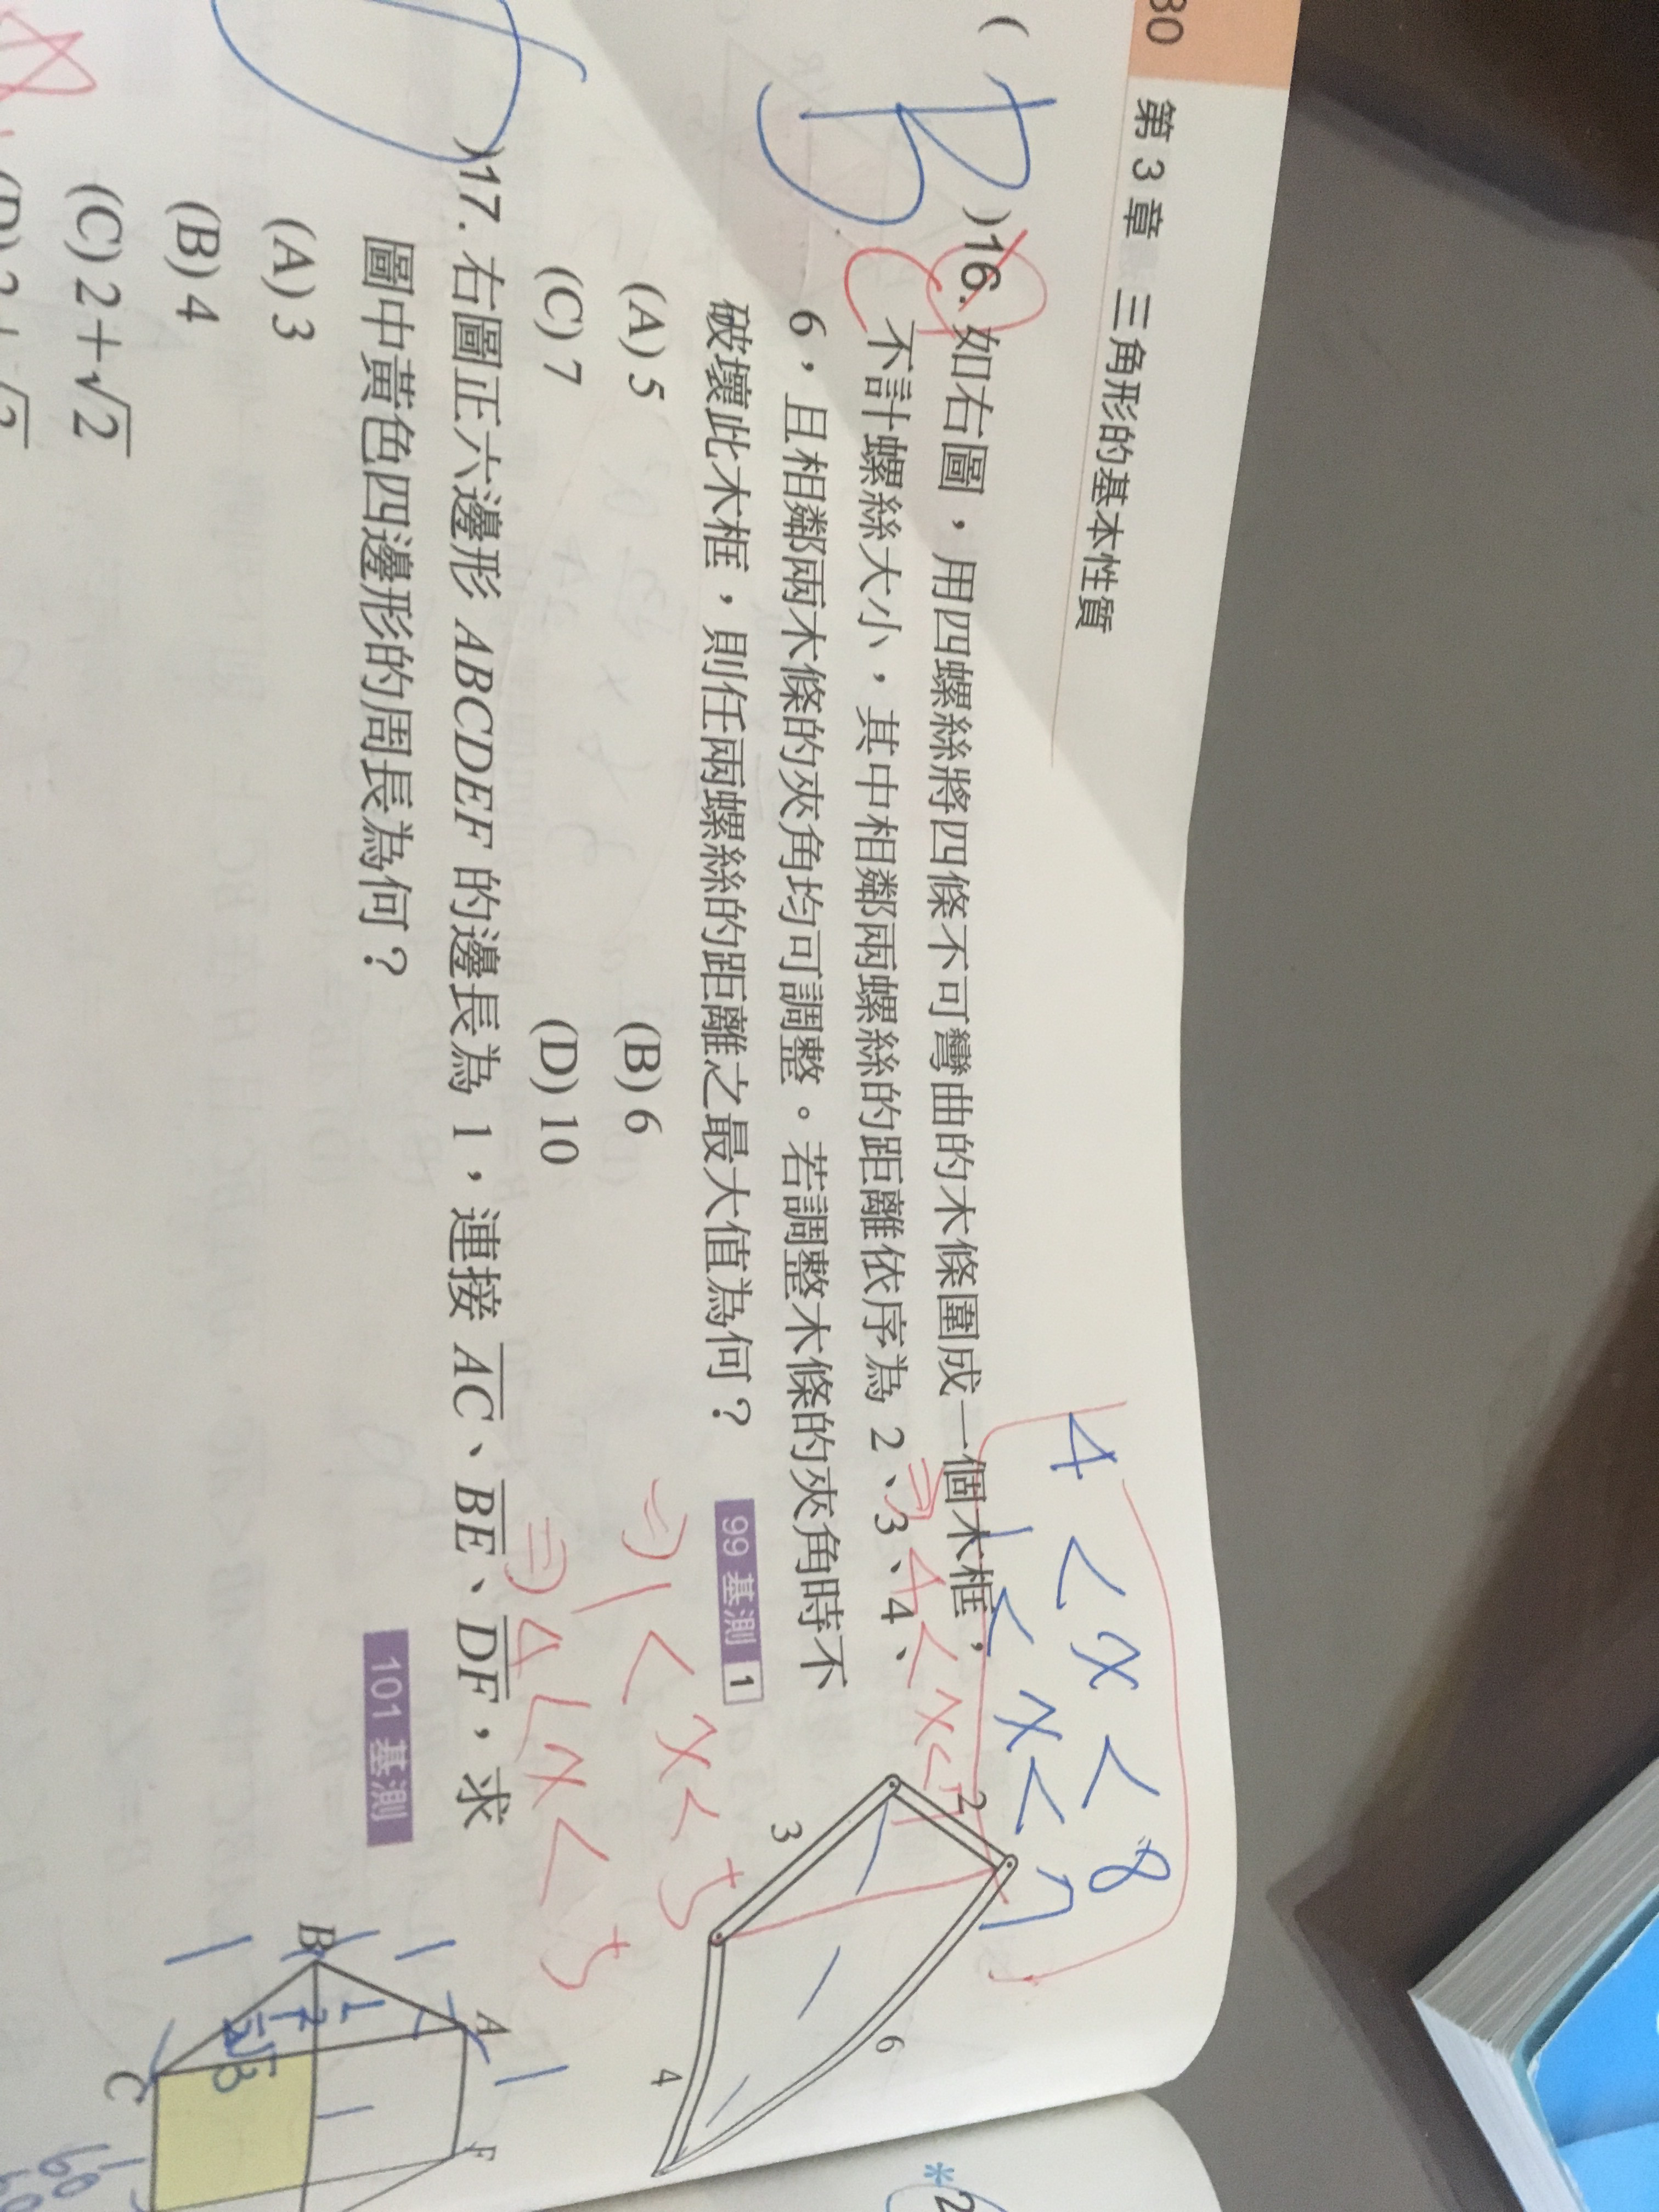 80 第 3 章 三角形的基本性質
( B )16. 如右圖，用四螺絲將四條不可彎曲的木條圍成一個木框，
不計螺絲大小，其中相鄰兩螺絲的距離依序為 2、3、4、
6，且相鄰兩木條的夾角均可調整。若調整木條的夾角時不
破壞此木框，則任兩螺絲的距離之最大值為何？ 99 基測 1
(A) 5 (B) 6
(C) 7 (D) 10
4 < x < 8
1 < x < 7
⇒ 4 < x < 7
⇒ 1 < x < 5
⇒ 4 < x < 5
2
3
6
4
)17. 右圖正六邊形 ABCDEF 的邊長為 1，連接 AC、BE、DF，求
圖中黃色四邊形的周長為何？ 101 基測
(A) 3
(B) 4
(C) 2+√2
A
B
C
F
1
1
1
1
*2